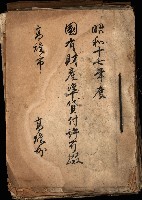 昭和十七年度
國有財産準貸付許可綴
高雄市
高雄州